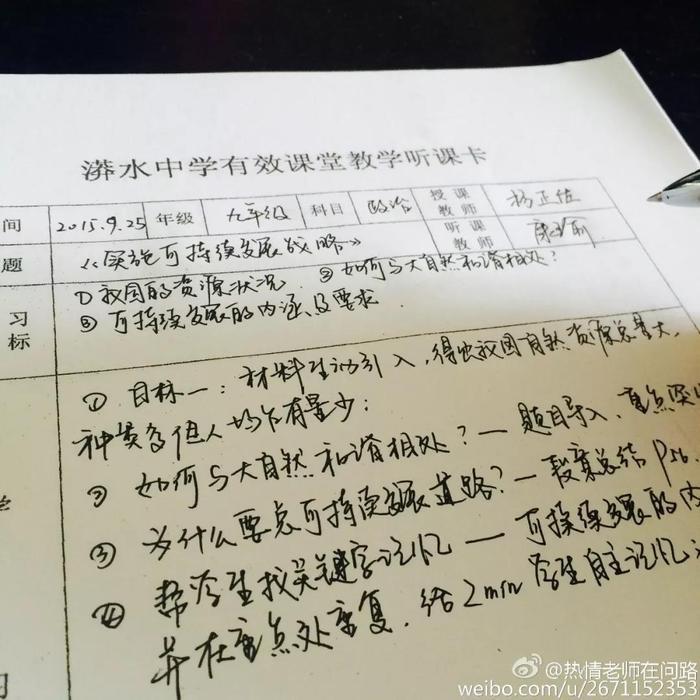 漭水中学有效课堂教学听课卡
间 2015.9.25 年级 九年级 科目 政治 授课教师 杨正佐
听课教师
题 《实施可持续发展战略》
习标 ①我国的资源状况 ②如何与大自然和谐相处?
③可持续发展的内涵及要求.
①目标一:材料生动引入,得出我国自然资源总量大,
种类多但人均占有量少;
②如何与大自然和谐相处?—题目导入,重点突
③为什么要走可持续发展道路?—股案总结 P56.
帮学生找关键字记忆—可持续发展的内
④并在重点处重复,给2min学生自主记忆
学
习
@热情老师在问路
weibo.com/u/2671152353